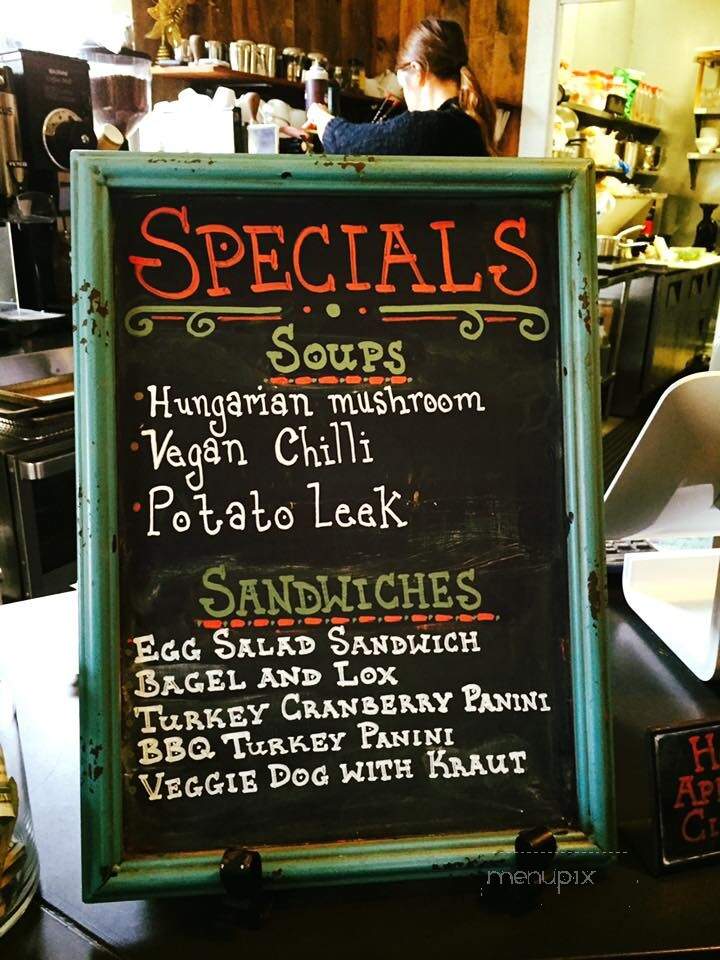 SPECIALS
SOUPS
Hungarian mushroom
Vegan Chilli
Potato Leek
SANDWICHES
EGG SALAD SANDWICH
BAGEL AND LOX
TURKEY CRANBERRY PANINI
BBQ TURKEY PANINI
VEGGIE DOG WITH KRAUT
menupix